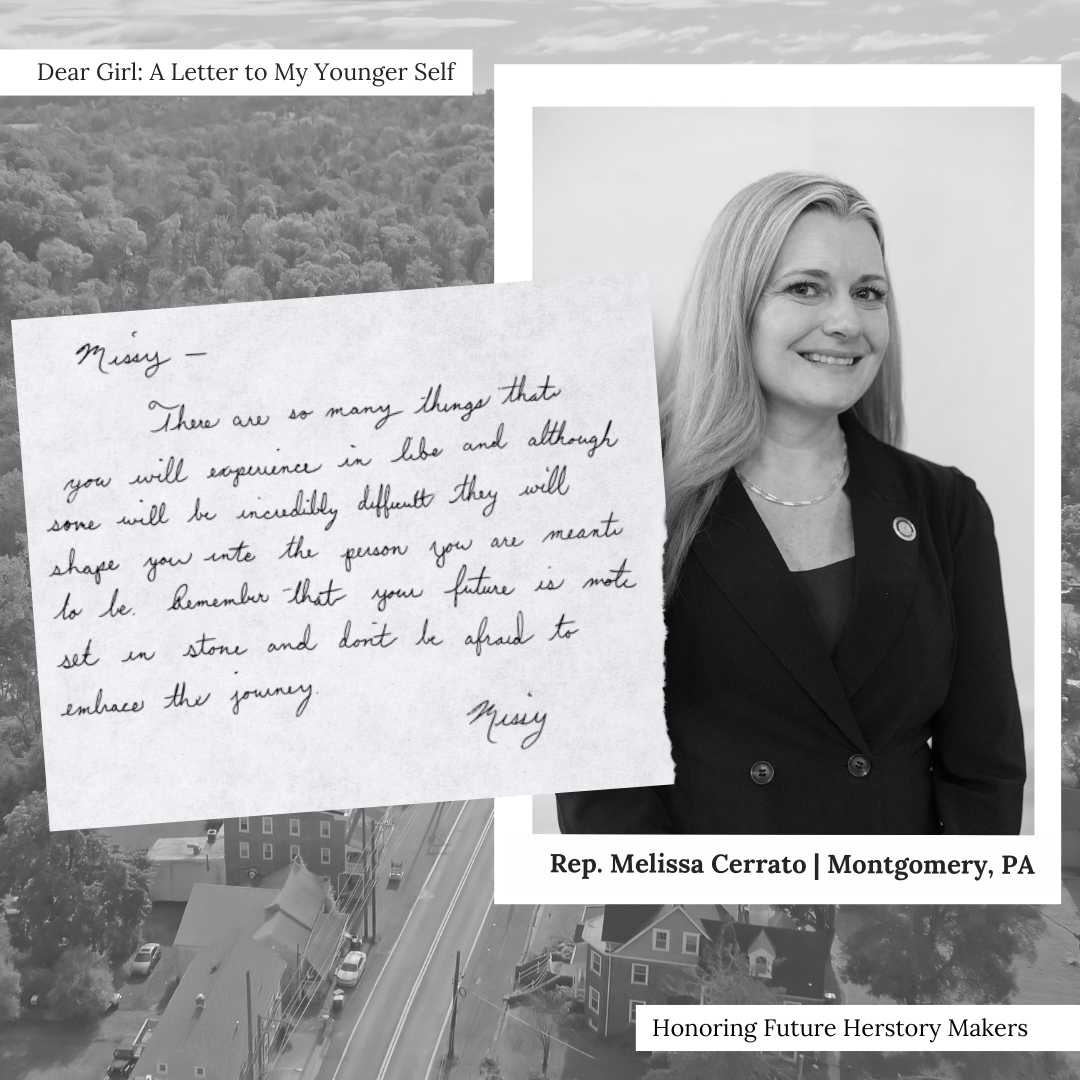 Dear Girl: A Letter to My Younger Self
Missy —
There are so many things that
you will experience in life and although
some will be incredibly difficult they will
shape you into the person you are meant
to be. Remember that your future is not
set in stone and don't be afraid to
embrace the journey.
Missy
Rep. Melissa Cerrato | Montgomery, PA
Honoring Future Herstory Makers